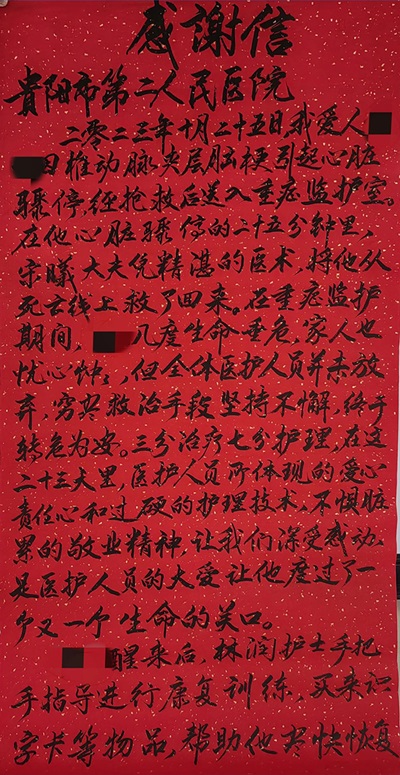 感謝信
貴阳市第二人民医院
二零二三年十月二十五日,我爱人
因椎动脉夹层脑梗引起心脏
骤停,经抢救后送入重症监护室。
在他心脏骤停的二十五分钟里,
宋曦大夫凭精湛的医术,将他从
死亡线上救了回来。在重症监护
期间,几度生命垂危,家人也
忧心忡忡,但全体医护人员并未放
弃,穷尽救治手段坚持不懈,终于
转危为安。三分治疗七分护理,在这
二十三天里,医护人员所体现的爱心
责任心和过硬的护理技术,不惧脏
累的敬业精神,让我们深受感动。
是医护人员的大爱让他度过了一
个又一个生命的关口。
醒来后,林润护士手把
手指导进行康复训练,买来识
字卡等物品,帮助他尽快恢复